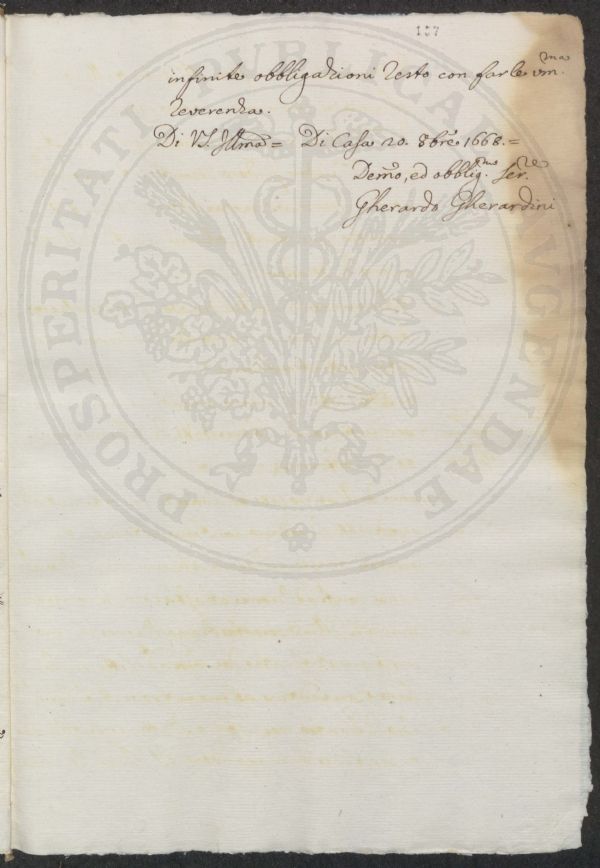 157
infinite obbligazioni resto con farle um.ma
reverenza.
Di VS. Illma = Di Casa 20. 8bre 1668. =
Demo, ed obblig.mo ser.re
Gherardo Gherardini
PROSPERITATI PUBLICAE AVGENDAE